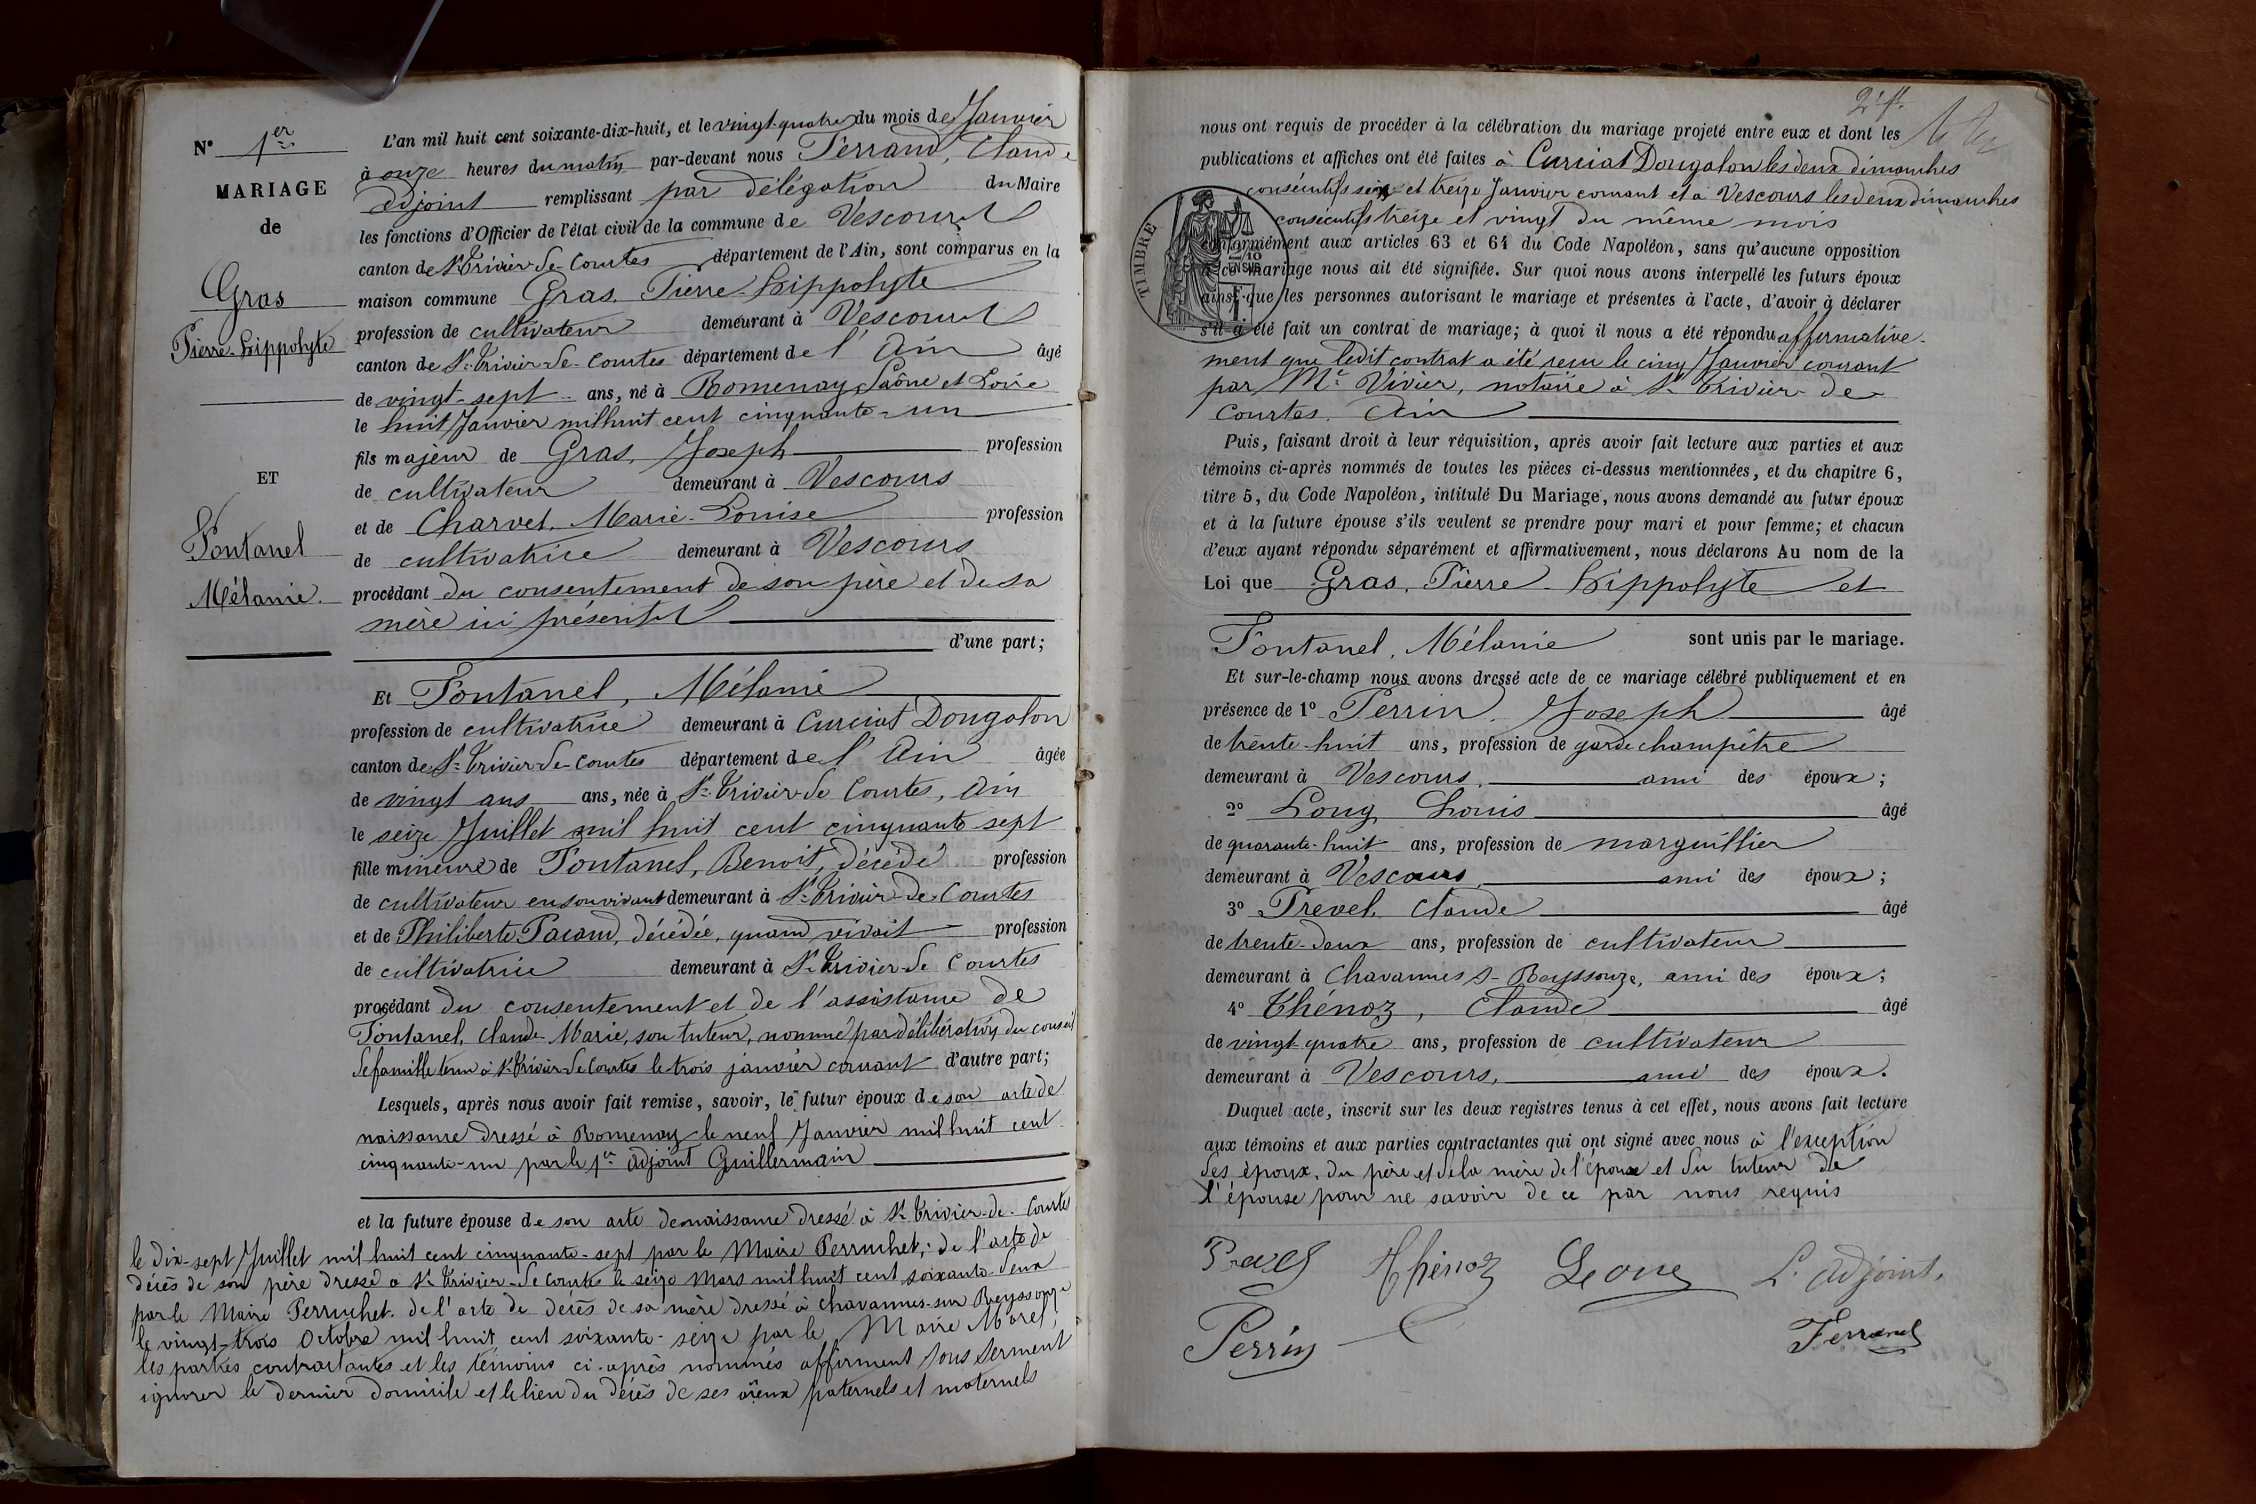 N° 1er
MARIAGE
de
Gras
Pierre-Hippolyte
ET
Fontanel
Mélanie.
L'an mil huit cent soixante-dix-huit, et le vingt-quatre du mois de Janvier
à onze heures du matin par-devant nous Ferrand, Claude
adjoint remplissant par délégation du Maire
les fonctions d'Officier de l'état civil de la commune de Vescours
canton de St Trivier-de-Courtes département de l'Ain, sont comparus en la
maison commune Gras, Pierre-Hippolyte
profession de cultivateur demeurant à Vescours
canton de St Trivier-de-Courtes département de l'Ain âgé
de vingt-sept ans, né à Romenay, Saône et Loire
le huit Janvier mil huit cent cinquante-un
fils majeur de Gras, Joseph profession
de cultivateur demeurant à Vescours
et de Charvet, Marie-Louise profession
de cultivatrice demeurant à Vescours
procédant du consentement de son père et de sa
mère ici présents
d'une part;
Et Fontanel, Mélanie
profession de cultivatrice demeurant à Curciat Dongalon
canton de St Trivier-de-Courtes département de l'Ain âgée
de vingt ans ans, née à St Trivier-de Courtes, Ain
le seize Juillet mil huit cent cinquante-sept
fille mineure de Fontanel, Benoit, décédé profession
de cultivateur en son vivant demeurant à St Trivier-de-Courtes
et de Philiberte Pacaud, décédée, quand vivait profession
de cultivatrice demeurant à St Trivier-de Courtes
procédant du consentement et de l'assistance de
Fontanel, Claude-Marie, son tuteur, nommé par délibération du conseil
de famille tenu à St Trivier de Courtes le trois janvier courant d'autre part;
Lesquels, après nous avoir fait remise, savoir, le futur époux de son acte de
naissance dressé à Romenay le neuf Janvier mil huit cent
cinquante-un par le 1er adjoint Guillermain
et la future épouse de son acte de naissance dressé à St Trivier-de-Courtes
le dix-sept Juillet mil huit cent cinquante-sept par le Maire Perruchet; de l'acte de
décès de son père dressé à St Trivier-de Courtes le seize Mars mil huit cent soixante-deux
par le Maire Perruchet. de l'acte de décès de sa mère dressé à Chavannes-sur Reyssouze
le vingt-trois Octobre mil huit cent soixante-seize par le Maire Morel,
les parties contractantes et les témoins ci-après nommés affirment sous serment
ignorer le dernier domicile et le lieu du décès de ses aïeux paternels et maternels
2e f.
nous ont requis de procéder à la célébration du mariage projeté entre eux et dont les
publications et affiches ont été faites à Curciat Dongalon les deux dimanches
consécutifs six et treize Janvier courant et à Vescours les deux dimanches
consécutifs treize et vingt du même mois
TIMBRE
conformément aux articles 63 et 64 du Code Napoléon, sans qu'aucune opposition
à ce mariage nous ait été signifiée. Sur quoi nous avons interpellé les futurs époux
ainsi que les personnes autorisant le mariage et présentes à l'acte, d'avoir à déclarer
s'il a été fait un contrat de mariage; à quoi il nous a été répondu affirmative-
ment que ledit contrat a été reçu le cinq Janvier courant
par Me Vivier, notaire à St Trivier-de
Courtes. Ain
Puis, faisant droit à leur réquisition, après avoir fait lecture aux parties et aux
témoins ci-après nommés de toutes les pièces ci-dessus mentionnées, et du chapitre 6,
titre 5, du Code Napoléon, intitulé Du Mariage, nous avons demandé au futur époux
et à la future épouse s'ils veulent se prendre pour mari et pour femme; et chacun
d'eux ayant répondu séparément et affirmativement, nous déclarons Au nom de la
Loi que Gras, Pierre-Hippolyte et
Fontanel, Mélanie sont unis par le mariage.
Et sur-le-champ nous avons dressé acte de ce mariage célébré publiquement et en
présence de 1° Perrin, Joseph âgé
de trente-huit ans, profession de garde champêtre
demeurant à Vescours, ami des époux;
2° Long, Louis âgé
de quarante-huit ans, profession de marguillier
demeurant à Vescours, ami des époux;
3° Prevel, Claude âgé
de trente-deux ans, profession de cultivateur
demeurant à Chavannes s- Reyssouze, ami des époux;
4° Thénoz, Claude âgé
de vingt-quatre ans, profession de cultivateur
demeurant à Vescours, ami des époux.
Duquel acte, inscrit sur les deux registres tenus à cet effet, nous avons fait lecture
aux témoins et aux parties contractantes qui ont signé avec nous à l'exception
des époux, du père et de la mère de l'époux et du tuteur de
l'épouse pour ne savoir de ce par nous requis
Thénoz L'adjoint,
Perrin Ferrand